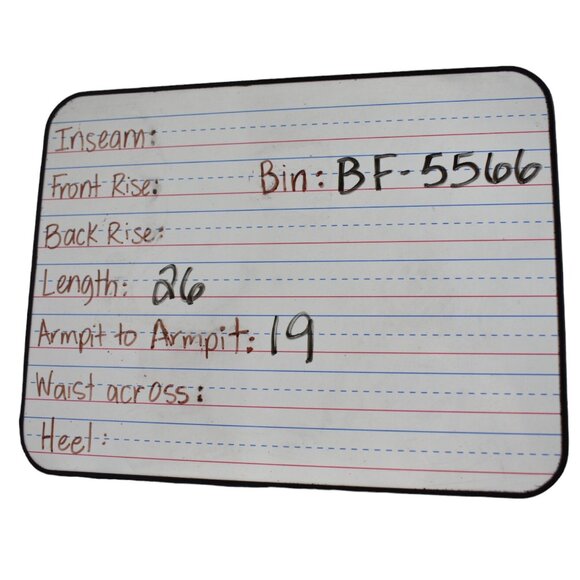 Inseam:
Front Rise: Bin: BF-5566
Back Rise:
Length: 26
Armpit to Armpit: 19
Waist across:
Heel: